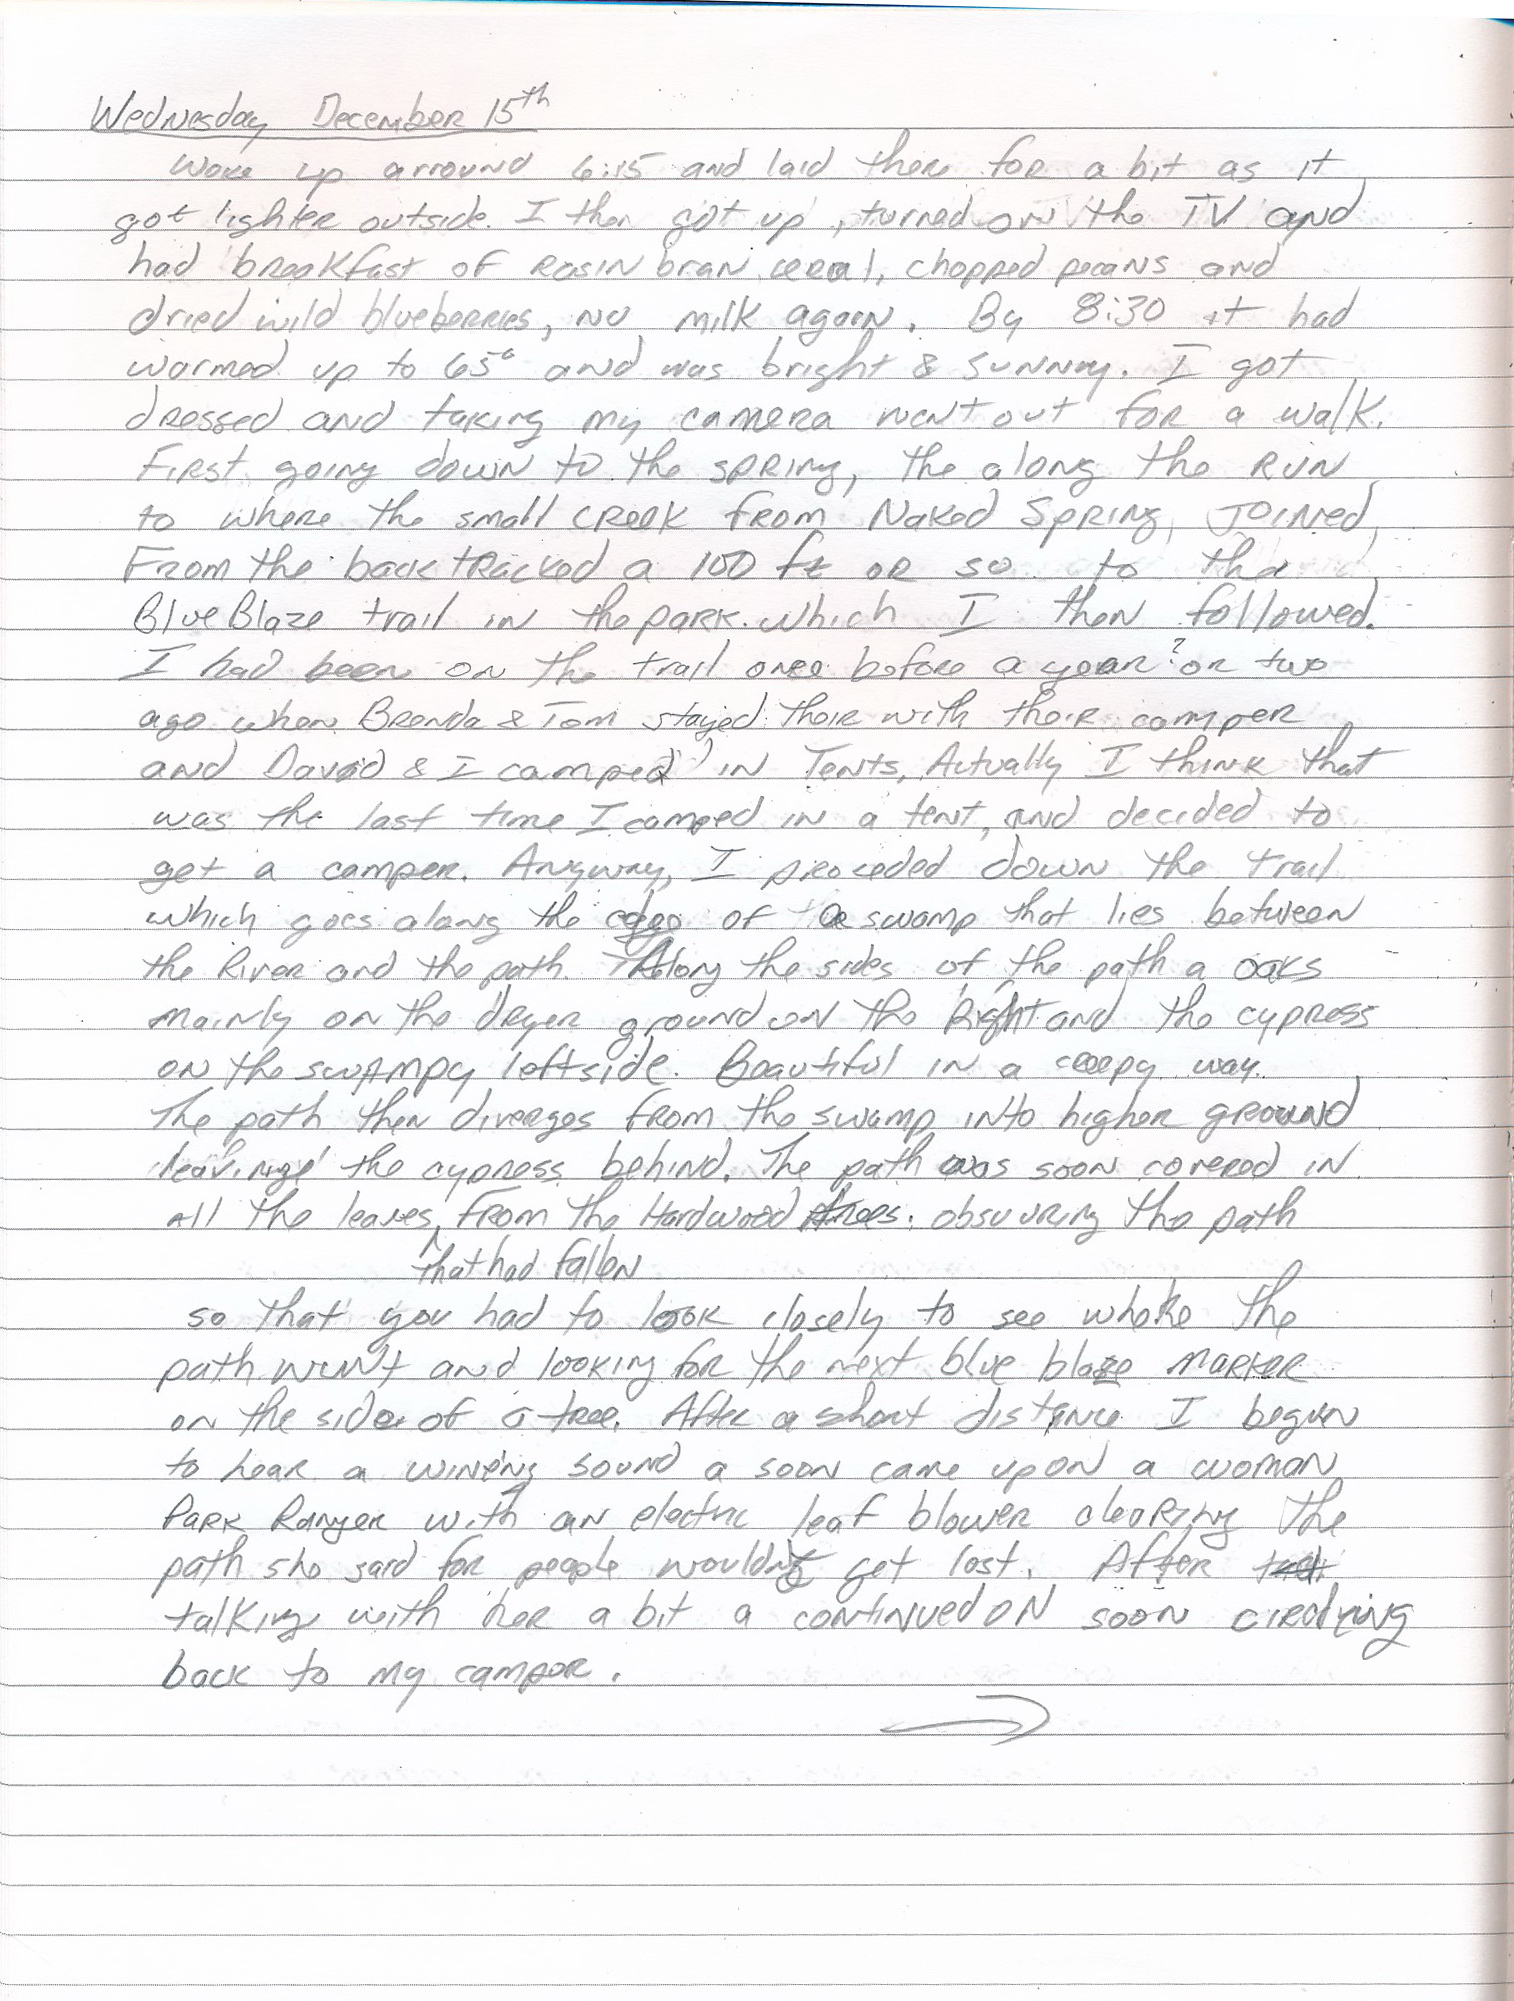 Wednesday December 15th
Woke up arround 6:15 and laid there for a bit as it
got lighter outside. I then got up, turned on the TV and
had breakfast of Rasin bran ceral, chopped pecans and
dried wild blueberries, no milk again. By 8:30 it had
warmed up to 65° and was bright & sunny. I got
dressed and taking my camera went out for a walk.
First going down to the spring, the along the RUN
to where the small creek from Naked Spring, joined,
From the backtracked a 100 ft or so to the
Blue Blaze trail in the park. which I then followed.
I had been on the trail once before a year? or two
ago when Brenda & Tom stayed their with their camper
and David & I camped in Tents, Actually I think that
was the last time I camped in a tent, and decided to
get a camper. Anyway, I proceded down the trail
which goes along the edge of a swamp that lies between
the River and the path. Along the sides of the path a oaks
mainly on the dryer ground on the Right and the cypress
on the swampy leftside. Beautiful in a creepy way.
The path then diverges from the swamp into higher ground
leaving the cypress behind. The path was soon covered in
all the leaves, From the Hardwood trees. obscuring the path
that had fallen
so that you had to look closely to see where the
path went and looking for the next blue blaze marker
on the side of a tree. After a short distance I began
to hear a wining sound a soon came upon a woman
Park Ranger with an electric leaf blower clearing the
path she said for people wouldn't get lost. After
talking with her a bit a continued on soon circling
back to my camper.